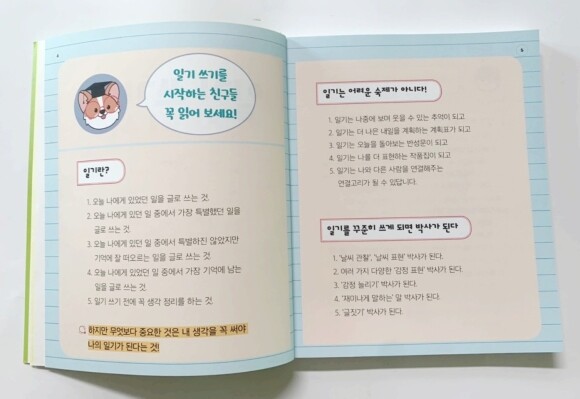 4
일기 쓰기를
시작하는 친구들
꼭 읽어 보세요!
일기란?
1. 오늘 나에게 있었던 일을 글로 쓰는 것.
2. 오늘 나에게 있던 일 중에서 가장 특별했던 일을
글로 쓰는 것.
3. 오늘 나에게 있던 일 중에서 특별하진 않았지만
기억에 잘 떠오르는 일을 글로 쓰는 것.
4. 오늘 나에게 있었던 일 중에서 가장 기억에 남는
일을 글로 쓰는 것.
5. 일기 쓰기 전에 꼭 생각 정리를 하는 것.
하지만 무엇보다 중요한 것은 내 생각을 꼭 써야
나의 일기가 된다는 것!
5
일기는 어려운 숙제가 아니다!
1. 일기는 나중에 보며 웃을 수 있는 추억이 되고
2. 일기는 더 나은 내일을 계획하는 계획표가 되고
3. 일기는 오늘을 돌아보는 반성문이 되고
4. 일기는 나를 더 표현하는 작품집이 되고
5. 일기는 나와 다른 사람을 연결해주는
연결고리가 될 수 있답니다.
일기를 꾸준히 쓰게 되면 박사가 된다
1. '날씨 관찰', '날씨 표현' 박사가 된다.
2. 여러 가지 다양한 '감정 표현' 박사가 된다.
3. '감정 늘리기' 박사가 된다.
4. '재미나게 말하는' 말 박사가 된다.
5. '글짓기' 박사가 된다.